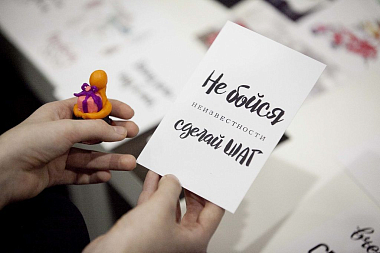 Не бойся
неизвестности
сделай ШАГ